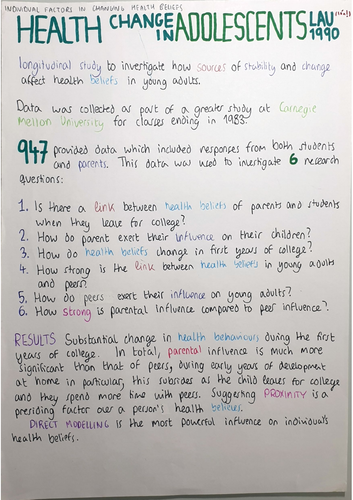 INDIVIDUAL FACTORS IN CHANGING HEALTH BELIEFS
HEALTH CHANGE IN ADOLESCENTS LAU 1990
longitudinal study to investigate how sources of stability and change
affect health beliefs in young adults.
Data was collected as part of a greater study at Carnegie
Mellon University for classes ending in 1983.
947 provided data which included responses from both students
and parents. This data was used to investigate 6 research
questions:
1. Is there a link between health beliefs of parents and students
when they leave for college?
2. How do parent exert their influence on their children?
3. How do health beliefs change in first years of college?
4. How strong is the link between health beliefs in young adults
and peers?
5. How do peers exert their influence on young adults?
6. How strong is parental influence compared to peer influence?
RESULTS Substantial change in health behaviours during the first
years of college. In total, parental influence is much more
significant than that of peers, during early years of development
at home in particular, this subsides as the child leaves for college
and they spend more time with peers. Suggesting PROXIMITY is a
presiding factor over a person's health believes.
DIRECT MODELLING is the most powerful influence on individual's
health beliefs.